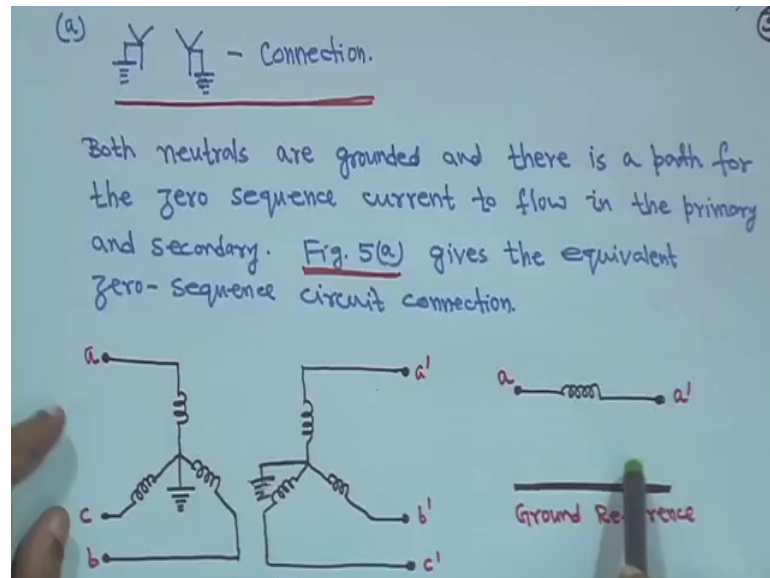 (a) - Connection.
Both neutrals are grounded and there is a path for
the zero sequence current to flow in the primary
and secondary. Fig. 5(a) gives the equivalent
zero-sequence circuit connection.
a
a'
a
a'
c
b'
b
c'
Ground